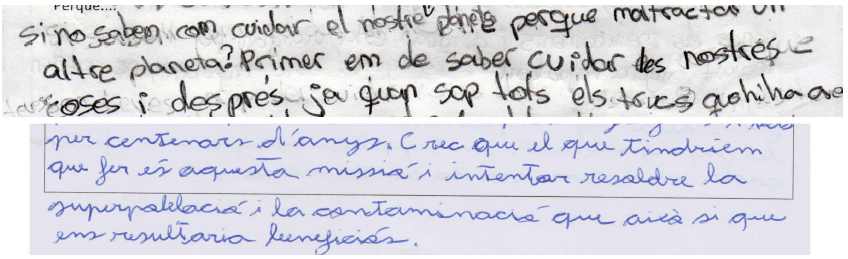 Perquè....
si no saben com cuidar el nostre planeta perque maltractar un
altre planeta? Primer em de saber cuidar les nostres
coses i després ja quan sap tots els trucs
per centenars d'anys. Crec que el que tindriem
que fer és aquesta missió i intentar resoldre la
superpoblació i la contaminació que això si que
ens resultaria beneficiós.